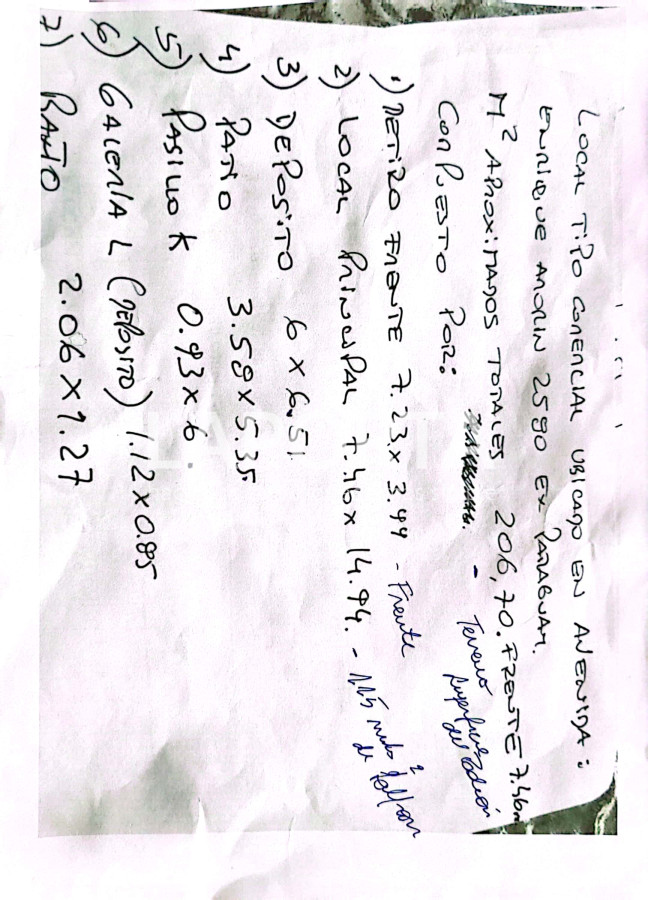 LOCAL TIPO COMERCIAL UBICADO EN AVENIDA:
ENRIQUE AMORIN 2590 EX PARAGUAY.
M² APROXIMADOS TOTALES 206,70. FRENTE 7.46m
- Terreno
COMPUESTO POR:
1) RETIRO FRENTE 7.23 x 3.99 - Frente
2) LOCAL PRINCIPAL 7.46 x 14.94. - 115 mts² de
3) DEPOSITO 6 x 6.51
4) PATIO 3.58 x 5.35
5) PASILLO K 0.93 x 6
6) GALERIA L (DEPOSITO) 1.12 x 0.85
7) BAÑO 2.06 x 1.27